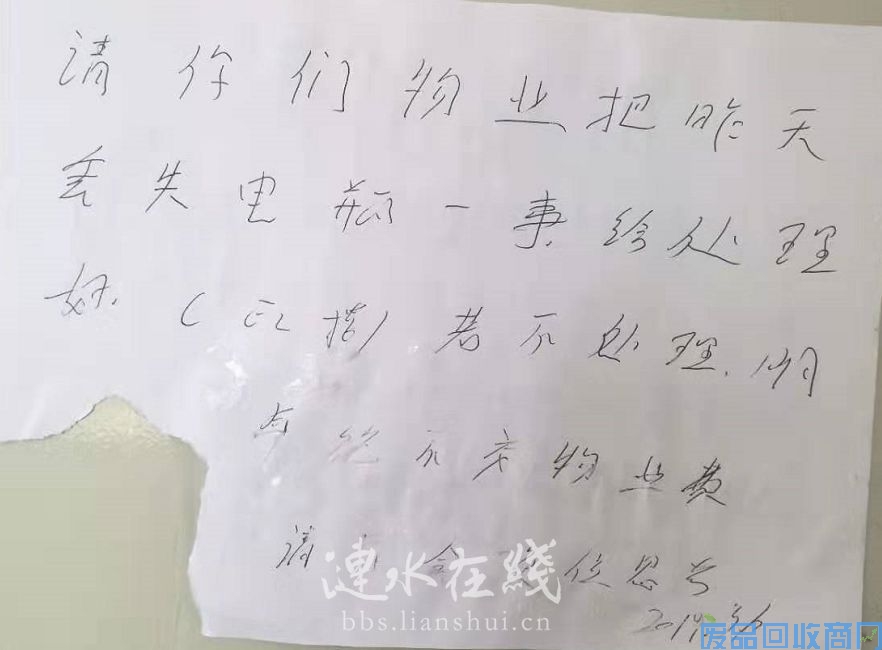 请你们物业把昨天
丢失电瓶一事给处理
好.(区楼)若不处理.明
年绝不交物业费
请 位思
漣水在綫
bbs.lianshui.cn
2019
废品回收商网